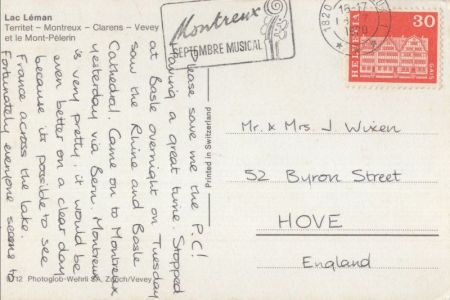 Lac Léman
Territet – Montreux – Clarens – Vevey
et le Mont-Pélerin
Montreux
SEPTEMBRE MUSICAL
1820
HELVETIA
30
Please save me the P.C!
Having a great time. Stopped
at Basle overnight on Tuesday
saw the Rhine and Basle
Cathedral. Came on to Montreux
yesterday via Bern. Montreux
is very pretty, it would be
even better on a clear day
because its possible to see
France across the lake.
Fortunately everyone seems to
Printed in Switzerland
Mr. & Mrs. J Wixen
52 Byron Street
HOVE
England
Photoglob-Wehrli SA, Zürich/Vevey